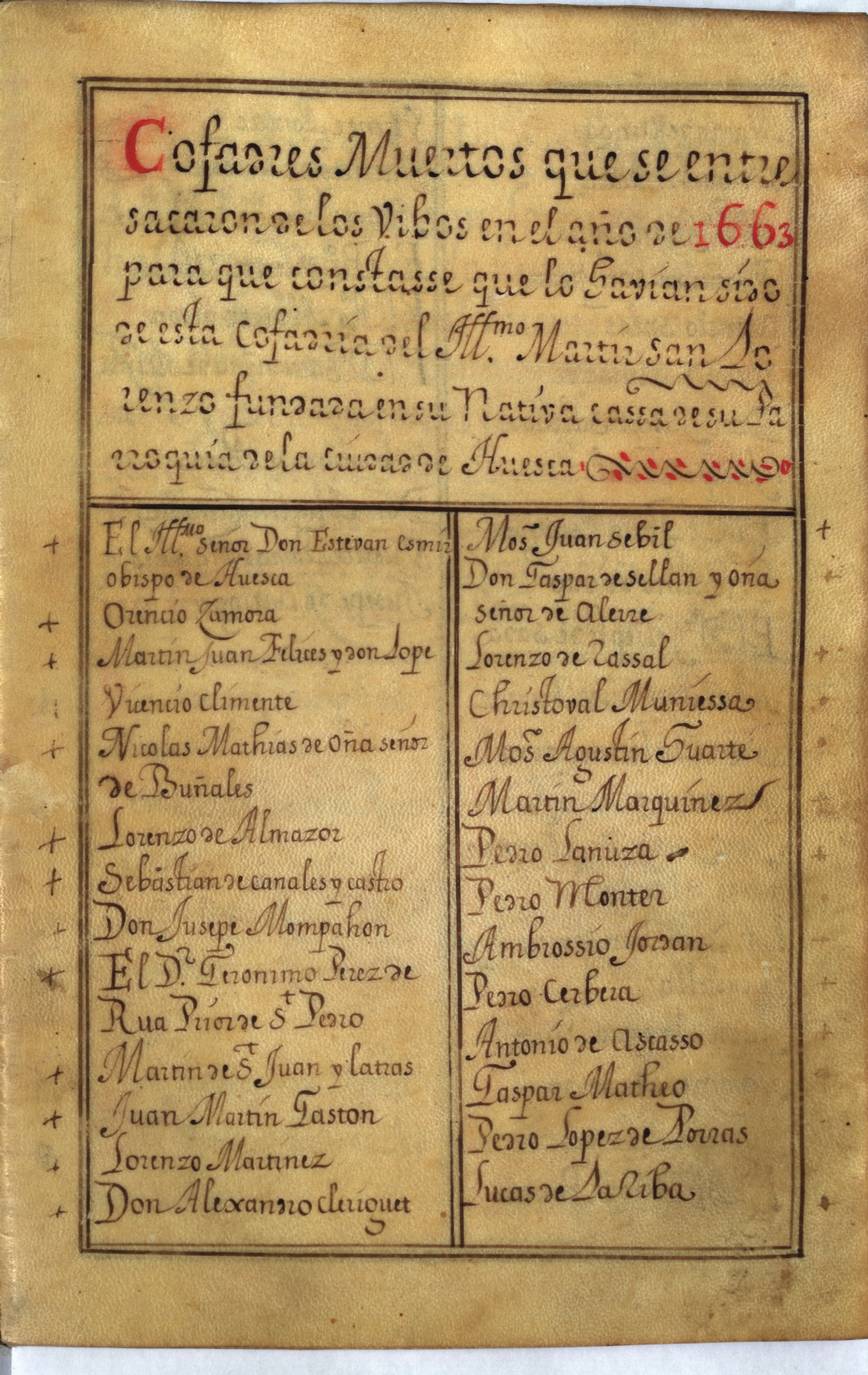 Cofadres Muertos que se entre
sacaron de los Vibos en el año de 1663
para que constasse que lo havian sido
de esta Cofadria del Illmo. Martir San Lo
renzo fundada en su Nativa cassa de su Pa
rroquia de la ciudad de Huesca
El Illmo. señor Don Estevan esmir
obispo de Huesca
Orencio Zamora
Martin Juan Felices y don Lope
Vicencio Climente
Nicolas Mathias de oña señor
de Buñales
Lorenzo de Almazor
Sebastian de canales y castro
Don Jusepe Mompahon
El Dr. Geronimo Perez de
Rua Prior de St Pedro
Martin de St Juan y latras
Juan Martin Gaston
Lorenzo Martinez
Don Alexandro cleriguet
Mos Juan sebil
Don Gaspar de sellan y oña
señor de Alerre
Lorenzo de Lassal
Christoval Muniessa
Mos Agustin Huarte
Martin Marquinez
Pedro Lanuza
Pedro Monter
Ambrossio Jordan
Pedro Cerbera
Antonio de Ascasso
Gaspar Matheo
Pedro Lopez de Porras
Lucas de La Riba